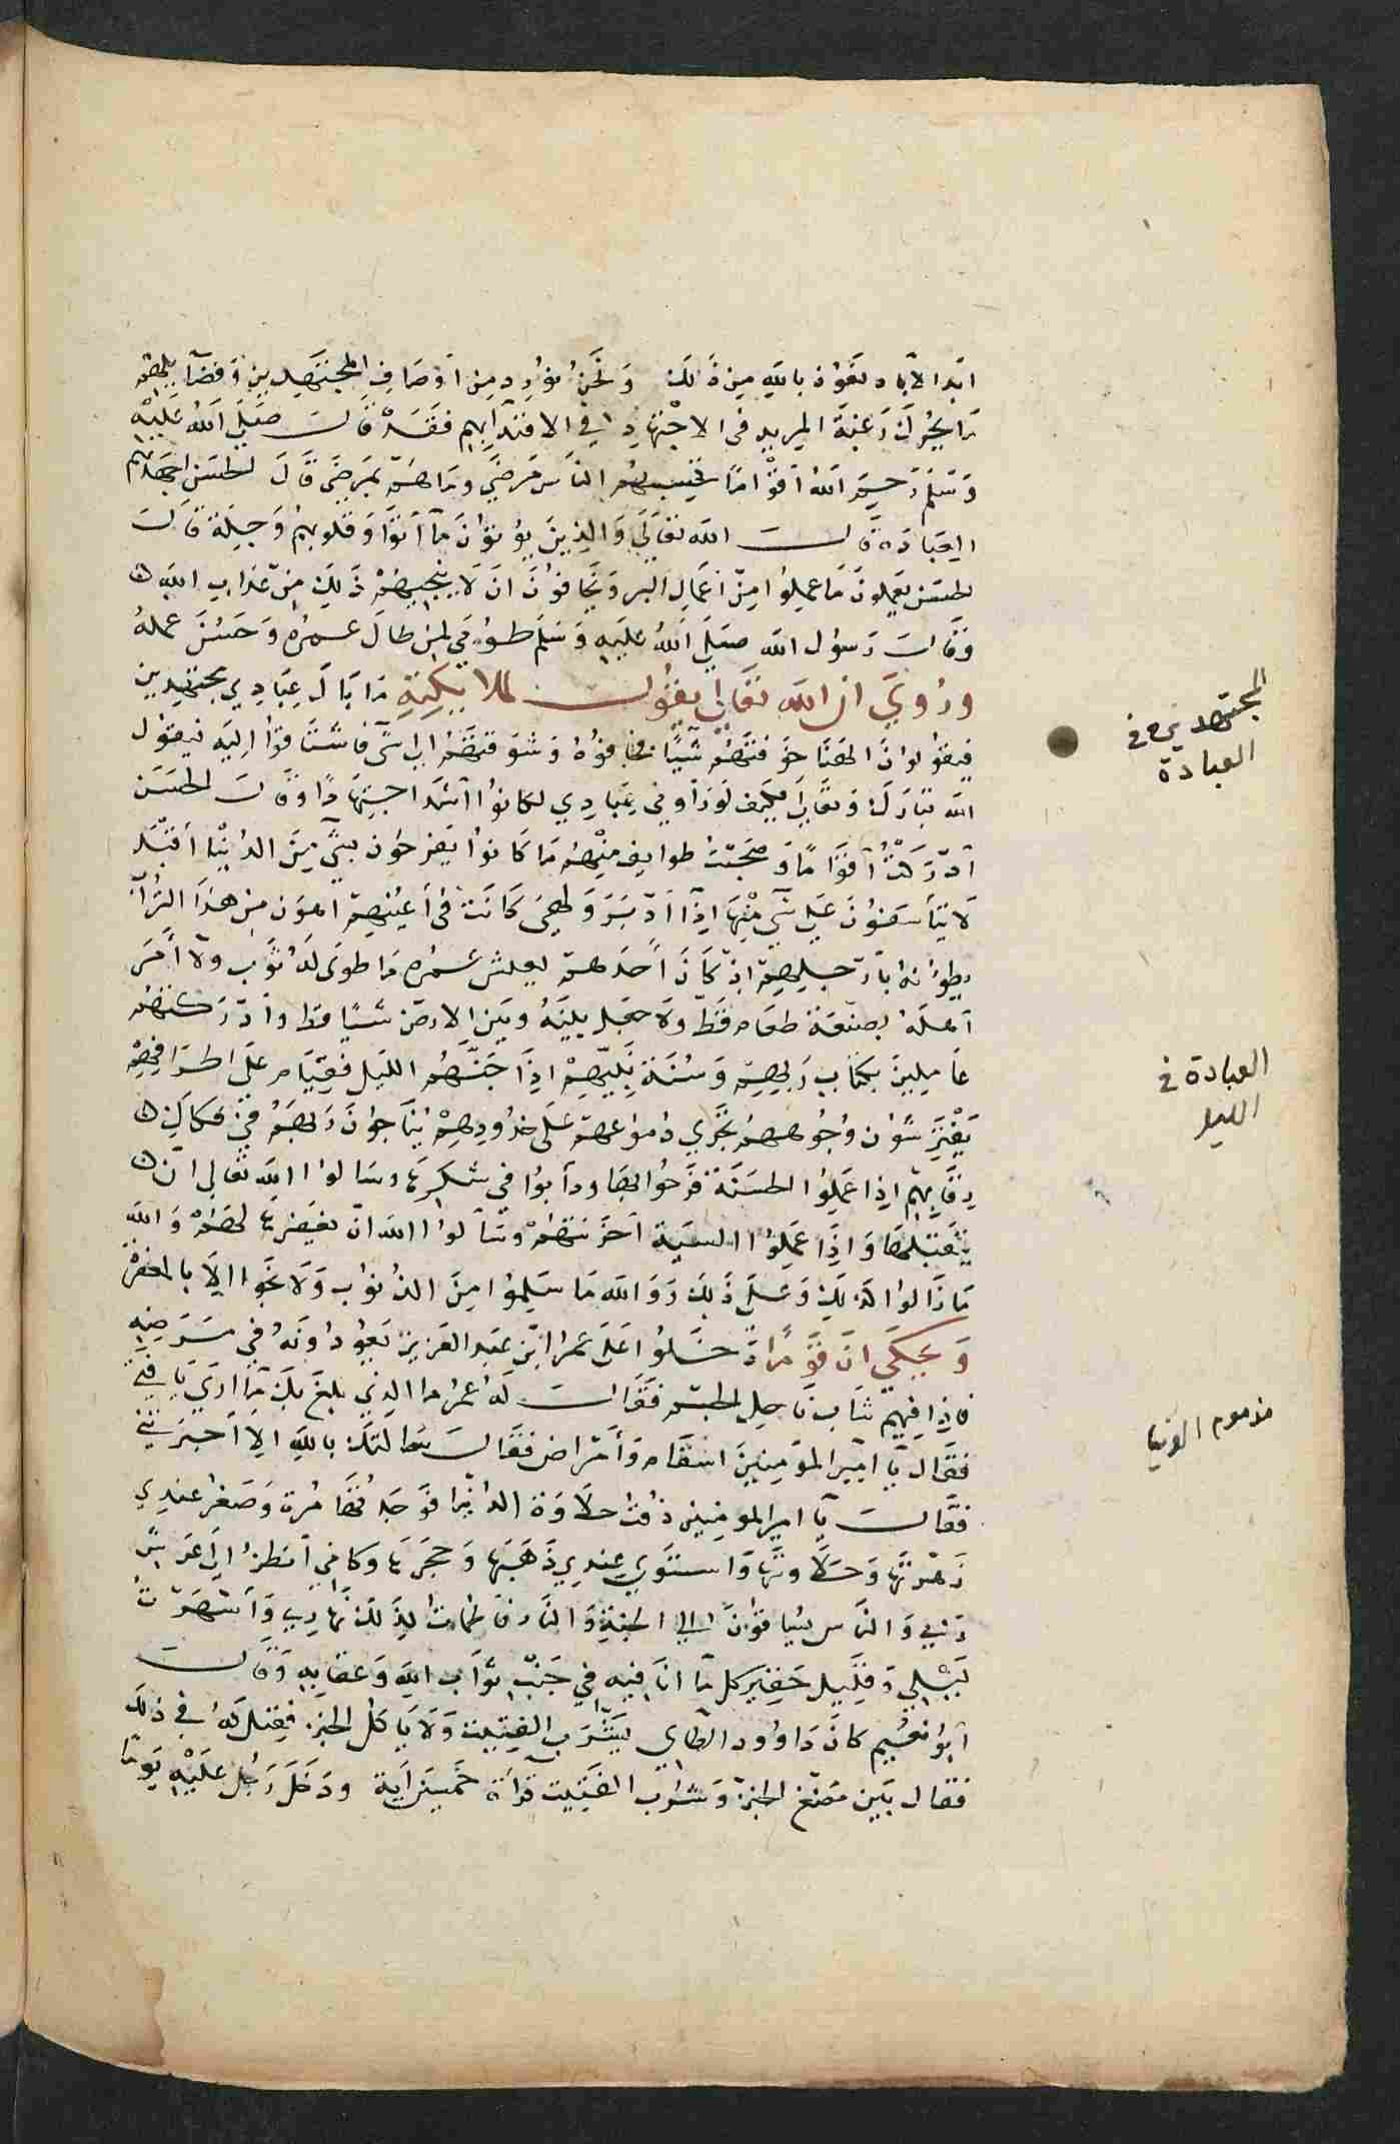 ابد الاباد نعوذ بالله من ذلك ونحن نورد من اوصاف المجتهدين وفضايلهم
ما يحرك رغبة المريد في الاجتهاد في الاقتدايهم فقد قال صلي الله عليه
وسلم رحم الله اقواما تحسبهم الناس مرضي وما هم بمرضي قال الحسن اجهدتهم
العبادة قال الله تعالي والذين يوتون ما اتوا وقلوبهم وجلة قال
لحسن يعملون ما عملوا من اعمال البر ويخافون ان لا ينجيهم ذلك من عذاب الله
وقال رسول الله صلي الله عليه وسلم طوبي لمن طال عمره وحسن عمله
وروي ان الله تعالي يقول لملايكته ما بال عبادي مجتهدين
فيقولون الهنا خوفتهم شيا فخافوه وشوقتهم الي شي فاشتاقوا اليه فيقول
الله تبارك وتعالي فكيف لو راوني عبادي لكانوا اشد اجتهادا وقال الحسن
ادركت اقواما وصحبت طوايف منهم ما كانوا يفرحون بشي من الدنيا اقبل
لا يتأسفون علي شي منها اذا ادبر ولهي كانت في اعينهم اهون من هذا التراب
يطونه بارجلهم ان كان احدهم ليعيش عمره ما طوي له ثوب ولا امر
اهله بصنعة طعام قط ولا جعل بينه وبين الارض شيا قط وادركتهم
عاملين بكتاب ربهم وسنة نبيهم اذا جنهم الليل فقيام علي اطرافهم
يفترشون وجوههم تجري دموعهم علي خدودهم يناجون ربهم في فكاك
رقابهم اذا عملوا الحسنة فرحوا بها ودأبوا في شكرها وسالوا الله تعالي ان
يتقبلها واذا عملوا السية احزنتهم وسألوا الله ان يغفرها لهم والله
ما زالوا كذلك وعلي ذلك ووالله ما سلموا من الذنوب ولا نجوا الا بالمغفرة
ويحكي ان قوما دخلوا علي عمر ابن عبد العزيز يعودونه في مرضه
فاذا فيهم شاب ناحل الجسم فقال له عمر ما الذي بلغ بك ما اري يا فتي
فقال يا امير المومنين اسقام وامراض فقال سالتك بالله الا اخبرتني
فقال يا امير المومنين ذقت حلاوة الدنيا فوجدتها مرة وصغر عندي
زهرتها وحلاوتها واستوي عندي ذهبها وحجرها وكاني انظر الي عرش
ربي والناس يساقون الي الجنة والنار فاظمات لذلك نهاري واسهرت
ليلي وقليل حقير كل ما انا فيه في جنب ثواب الله وعقابه وقال
ابو نعيم كان داوود الطاي يشرب الفتيت ولا ياكل الخبز فقيل له في ذلك
فقال بين مضغ الخبز وشرب الفتيت قراة خمسين اية ودخل رجل عليه يوما
المجتهدين في
العبادة
العبادة في
الليل
مذموم الدنيا